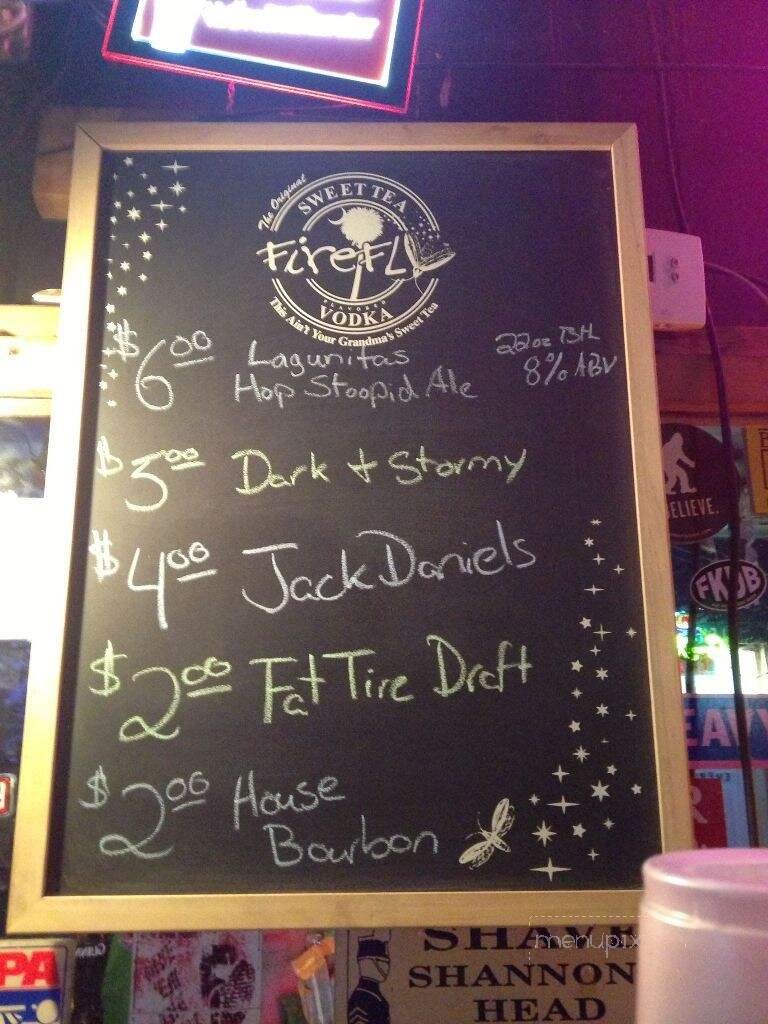 The Original
SWEET TEA
FireFLY
FLAVORED
VODKA
This Ain't Your Grandma's Sweet Tea
$6.00 Lagunitas 22oz Btl
Hop Stoopid Ale 8% ABV
$5.00 Dark + Stormy
$4.00 Jack Daniels
$2.00 Fat Tire Draft
$2.00 House
Bourbon
BELIEVE.
FKJB
EAVY
PA
SHAVE
SHANNON
HEAD
menupix